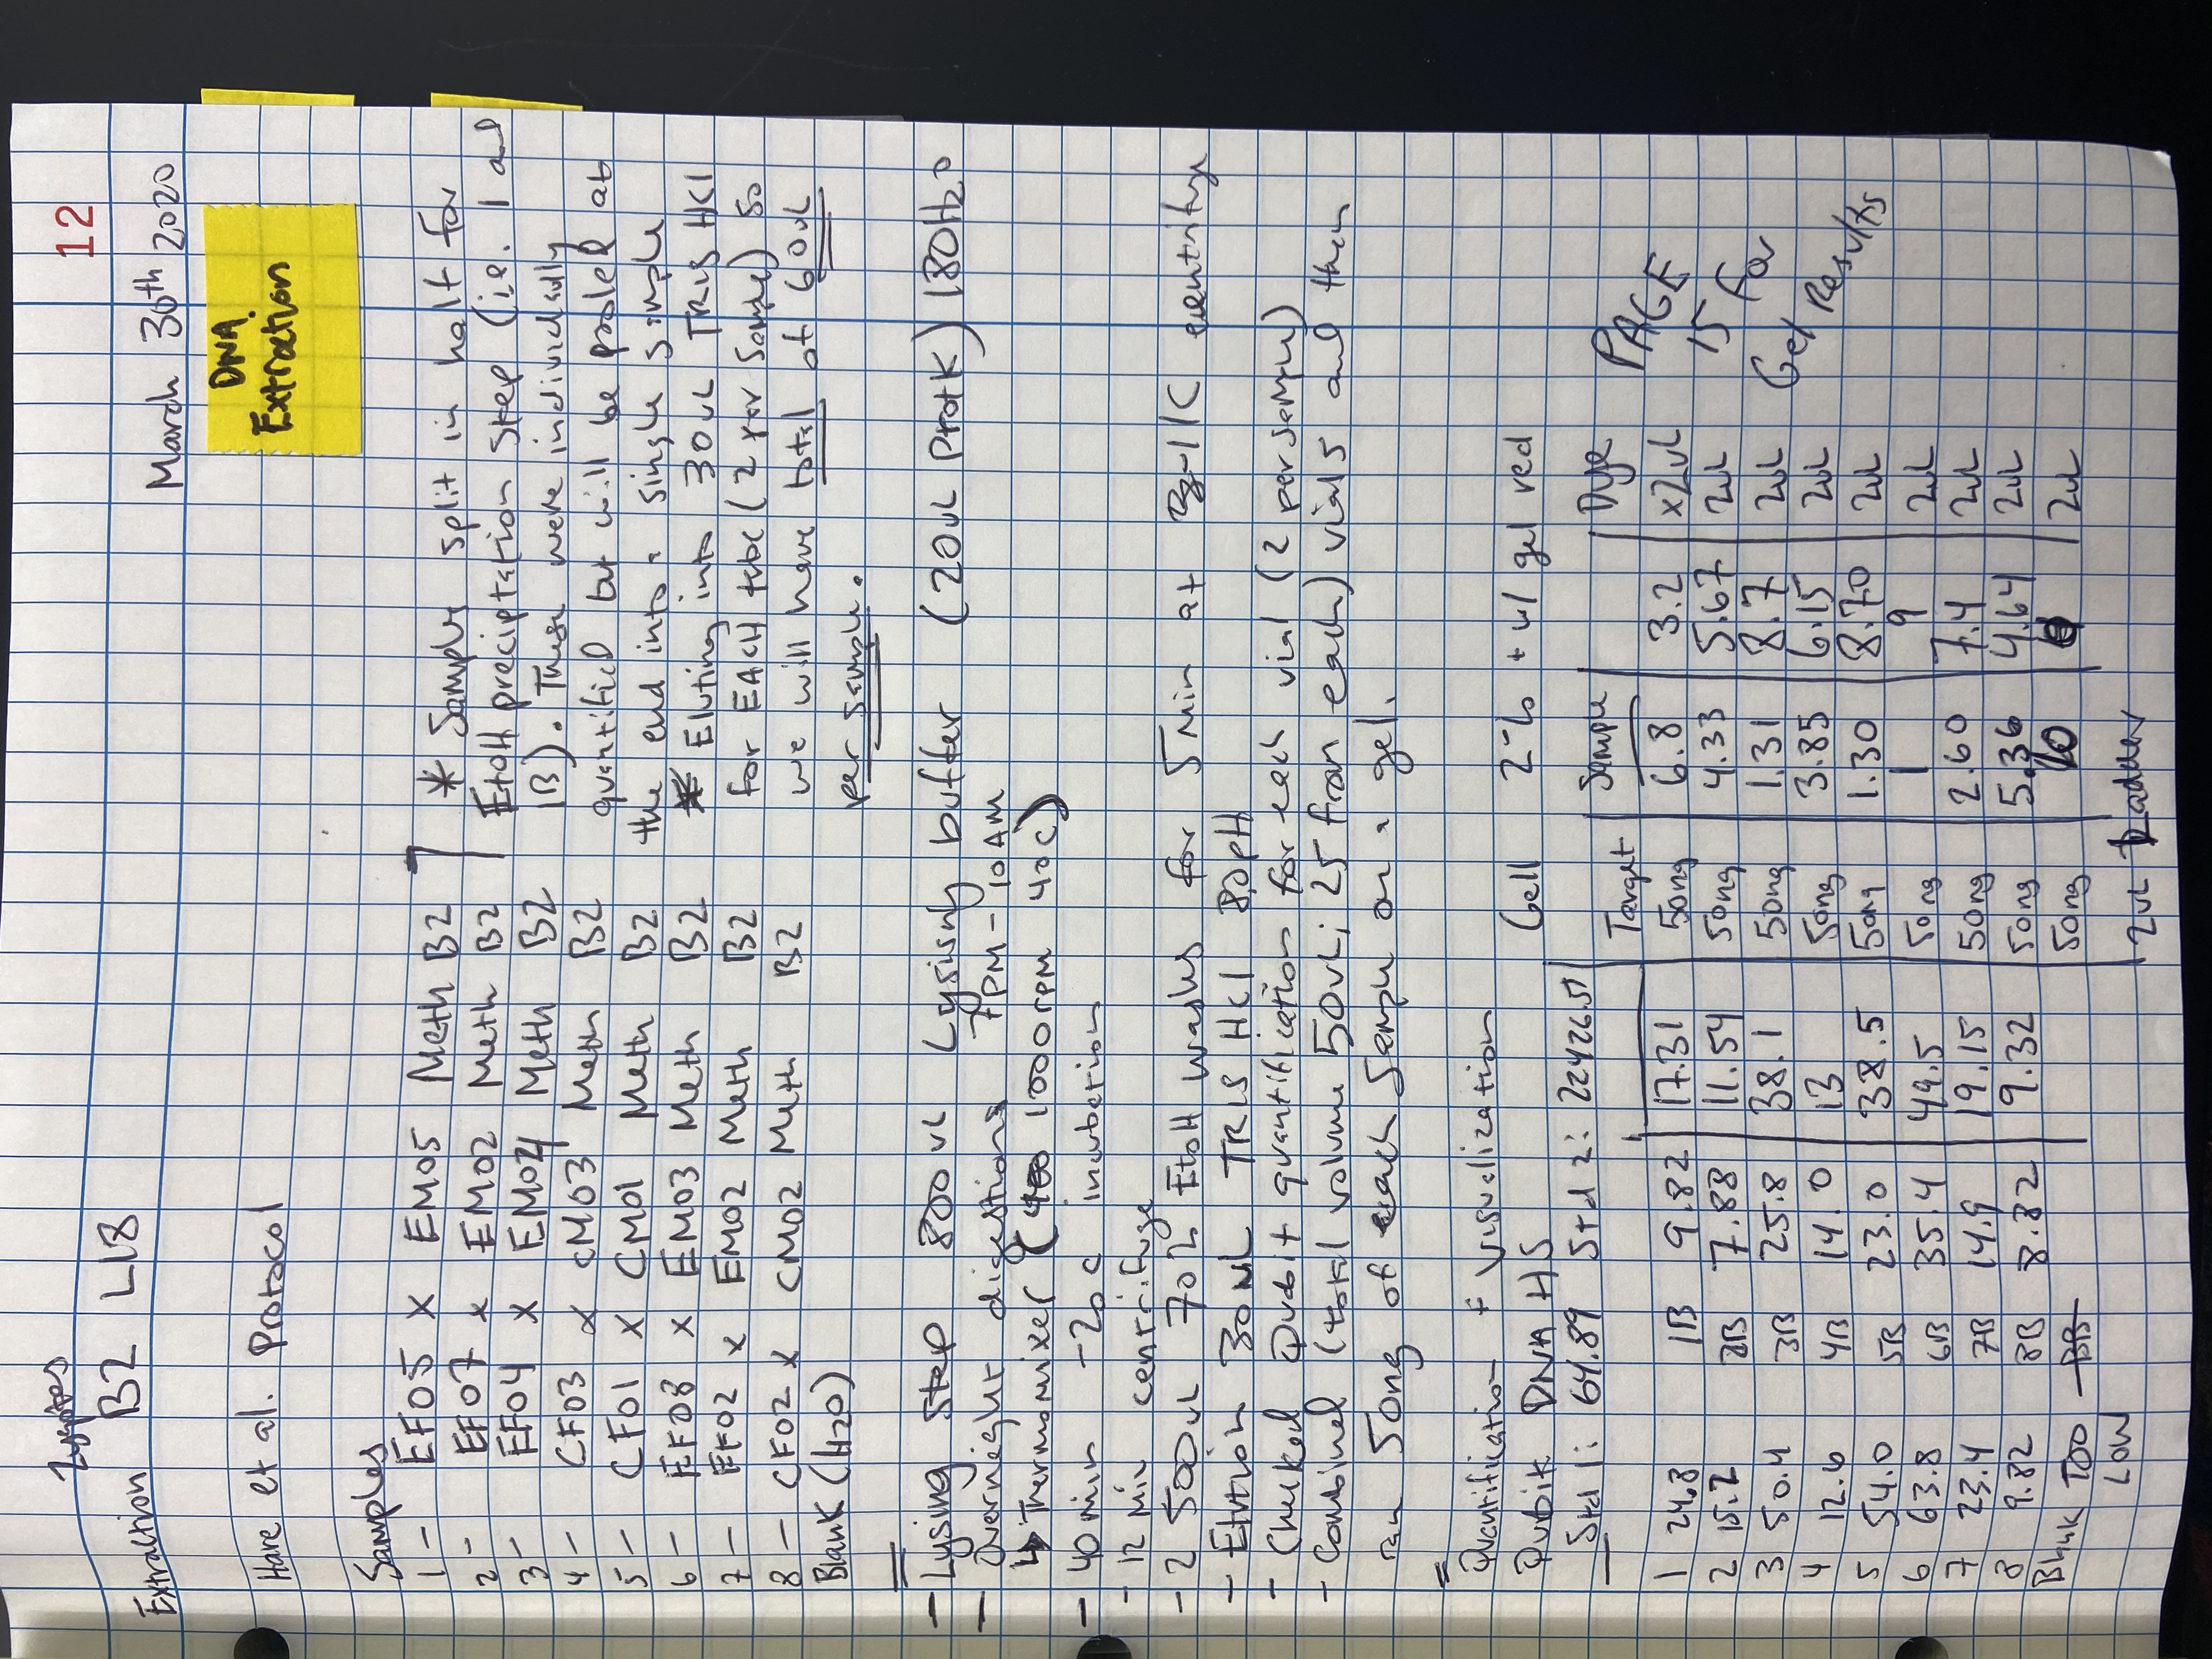 12
Zygotes
Extraction B2 L18
March 30th 2020
DNA
Extraction
Hare et al. Protocol
Samples
1 - EF05 x EM05 Meth B2
2 - EF07 x EM02 Meth B2
3 - EF04 x EM04 Meth B2
4 - CF03 x CM03 Meth B2
5 - CF01 x CM01 Meth B2
6 - EF08 x EM03 Meth B2
7 - EF02 x EM02 Meth B2
8 - CF02 x CM02 Meth B2
Blank (H2O)
* Samples split in half for
EtOH preciptation step (i.e. 1 and
1B). These were individually
quantified but will be pooled at
the end into a single sample
* Eluting into 30uL TRIS HCl
for EACH tube (2 per sample) so
we will have total of 60uL
per sample.
- Lysing step 800uL Lysisng buffer (20uL ProtK) 180H2O
- Overneight digestions 7PM - 10AM
↳ Thermomixer (400 1000rpm 40C)
- 40 min -20C incubation
- 12 Min centrifuge
- 2 500uL 70% EtOH washs for 5min at -11C centrifuge
- Elution 30uL TRIS HCl 8.0pH
- Checked Qubit quantification for each vial (2 per sample)
- Combined (total volume 50uL; 25 from each) vials and then
ran 50ng of each sample on a gel.
Quantification + Visualization
Qubit DNA HS
Gell 2% + w/ gel red
Std 1: 64.89 Std 2: 22426.51
Target Sample Dye
1 24.8 1B 9.82 17.31 50ng 6.8 3.2 x2uL
2 15.2 2B 7.88 11.54 50ng 4.33 5.67 2uL
3 50.4 3B 25.8 38.1 50ng 1.31 8.7 2uL
4 12.6 4B 14.0 13 50ng 3.85 6.15 2uL
5 54.0 5B 23.0 38.5 50ng 1.30 8.70 2uL
6 63.8 6B 35.4 49.5 50ng 1 9 2uL
7 23.4 7B 14.9 19.15 50ng 2.60 7.4 2uL
8 9.82 8B 8.82 9.32 50ng 5.36 4.64 2uL
Blank TOO LOW BB 50ng 10 2uL
2uL Ladder
PAGE
15 For
Gel Results